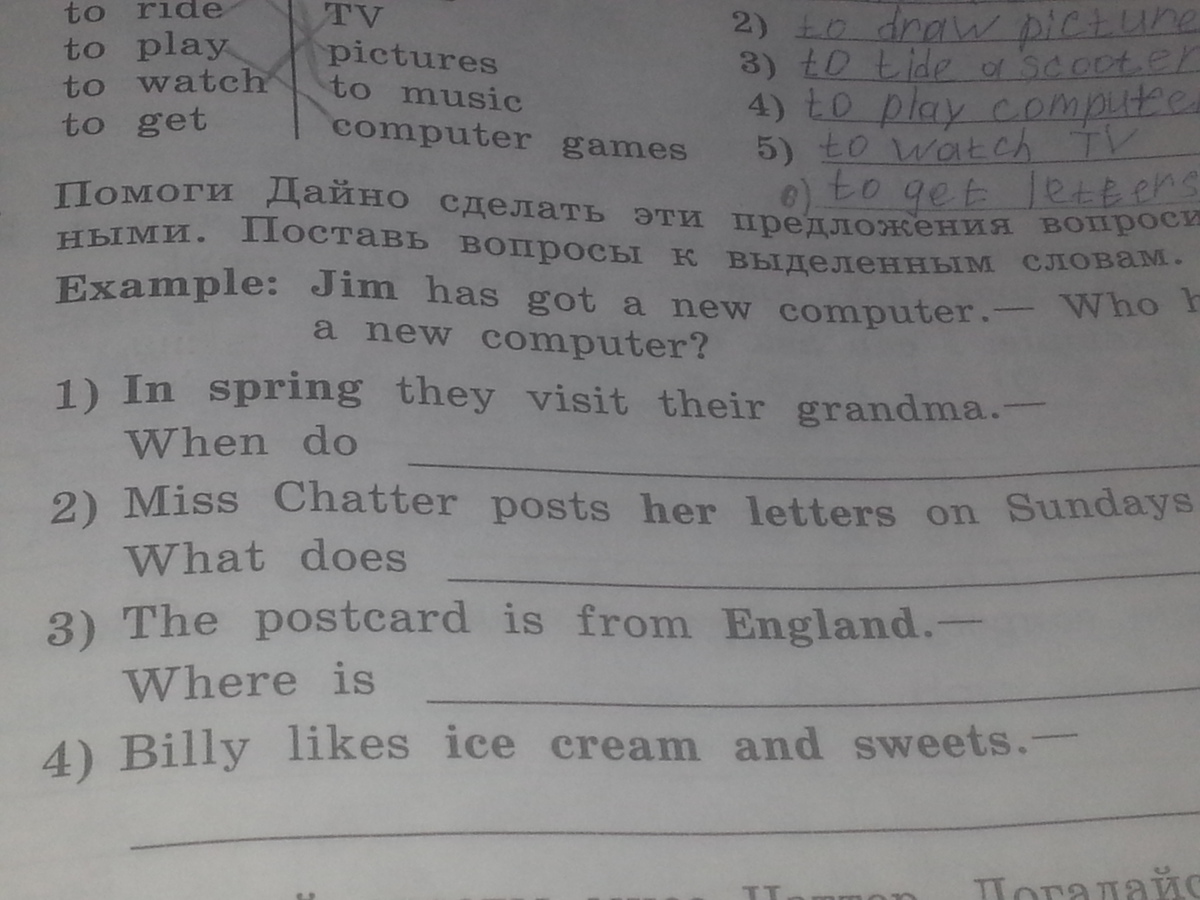 to ride
TV
to play
pictures
to watch
to music
to get
computer games
2) to draw picture
3) to tide a scooter
4) to play compute
5) to watch TV
6) to get letters
Помоги Дайно сделать эти предложения вопроси
ными. Поставь вопросы к выделенным словам.
Example: Jim has got a new computer.— Who h
a new computer?
1) In spring they visit their grandma.—
When do
2) Miss Chatter posts her letters on Sundays
What does
3) The postcard is from England.—
Where is
4) Billy likes ice cream and sweets.—